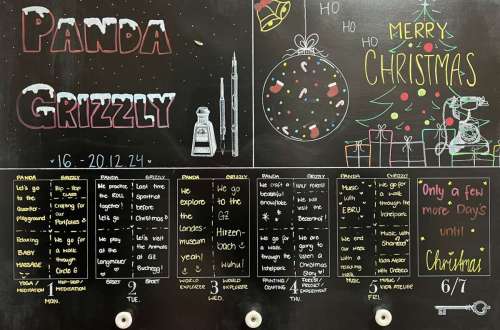 PANDA
GRIZZLY
16. - 20.12.24
HO
HO
HO
MERRY
CHRISTMAS
PANDA
GRIZZLY
Let's go
to the
playground
Relaxing
BABY
MASSAGE
YOGA /
MEDITATION
Hip - Hop
CLASS
Crafting
for our
Portfolios
We go
for a walk
through
Circle 6
YOGA /
MEDITATION
1
MON.
PANDA
GRIZZLY
We practice
the ROLL
together!
Let's go
We play
at the
Langmauer
SPORT
Last time
Sportina
before
Christmas
Let's visit
the Animals
at GZ
Buchegg!
SPORT
2
TUE.
PANDA
GRIZZLY
We
explore
the
Landes-
museum
yeah!
WORLD
EXPLORER
We go
to the
GZ
Hirzen-
bach
Wuhu!
WORLD
EXPLORER
3
WED.
PANDA
GRIZZLY
We craft a
beautiful
snowflake
We go for
a walk
through the
Irchelpark
PAINTING/
CRAFTING
WALD FOREST
We
visit
the
Beerenhof
We are
going to
listen a
Christmas
Story
4
THU.
PANDA
GRIZZLY
Music
with
EBRU
We end
the week
with a
relaxing
walk
MUSIC
We go for
a walk
through the
Irchelpark
Music with
Shanaaa
Kids Atelier
with Endrita
MUSIK/
KIDS ATELIER
5
FRI.
Only a few
more Day's
until
Christmas
6/7